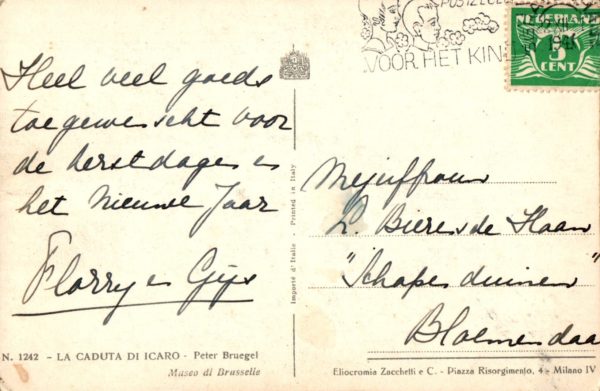 Heel veel goeds
toegewenscht voor
de kerstdagen en
het Nieuwe Jaar
Florry en Gijs
N. 1242 - LA CADUTA DI ICARO - Peter Bruegel
Museo di Brusselle
Importé d'Italie - Printed in Italy
POSTZEGELS
VOOR HET KIND
NEDERLAND
5
CENT
Mejuffrouw
L. Bierens de Haan
"Schapenduinen"
Bloemendaal
Eliocromia Zacchetti e C. - Piazza Risorgimento, 4 - Milano IV